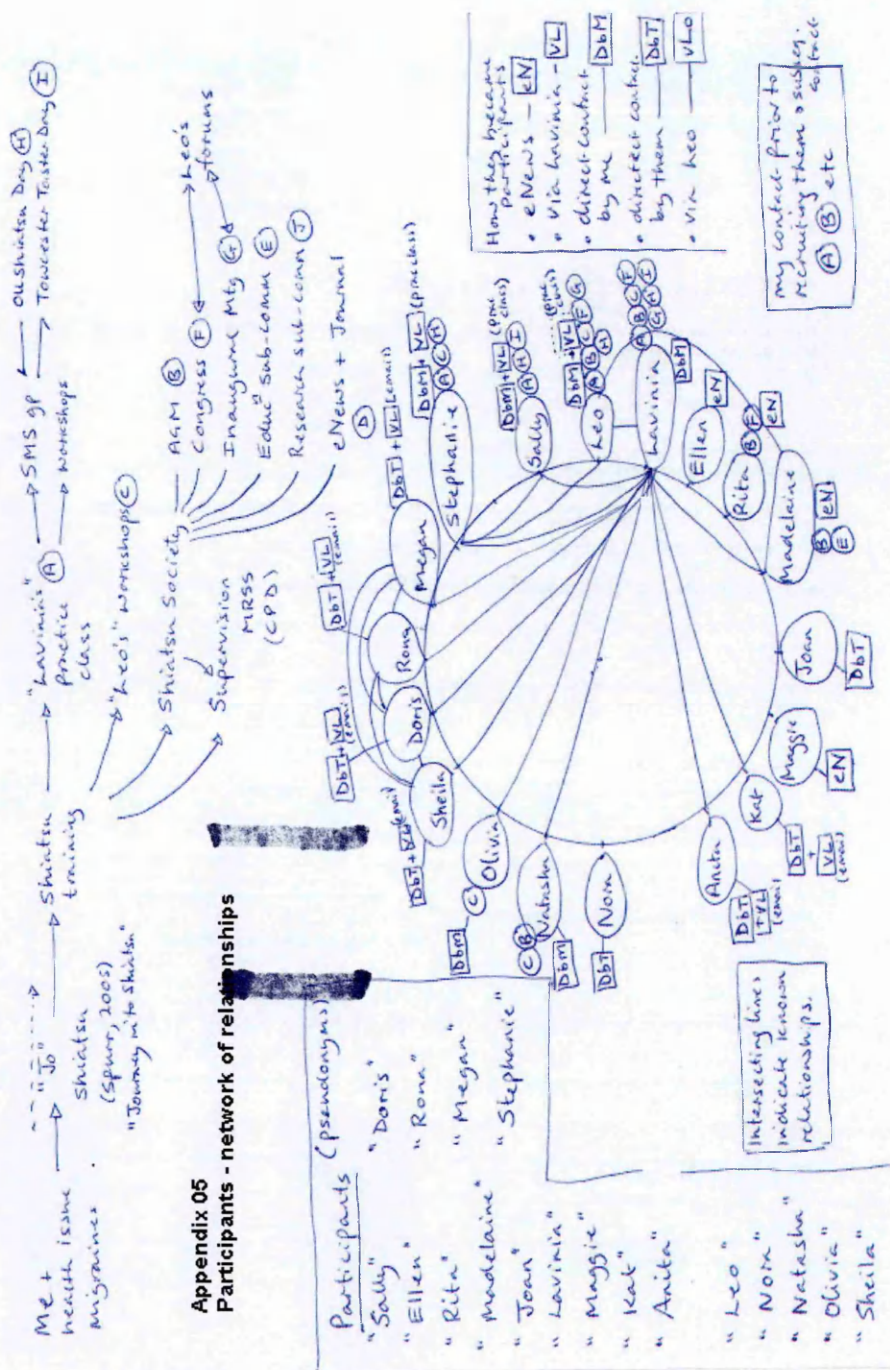 Me +
health issue
migraines.
"Jo"
Shiatsu
(Spurr, 2005)
"Journey in to Shiatsu"
Shiatsu
training
"Lavinia's"
practice (A)
class
SMS gp
workshops
OUShiatsu Day (H)
Towcester Taster Day (I)
"Leo's" Workshops (C)
Shiatsu Society
Supervision
MRSS
(CPD)
AGM (B)
Congress (F)
Inaugural Mtg (G)
Educⁿ sub-comm (E)
Research sub-comm (J)
eNews + Journal
(D)
Leo's
forums
Appendix 05
Participants - network of relationships
Participants (pseudonyms)
"Sally"
"Ellen"
"Rita"
"Madelaine"
"Joan"
"Lavinia"
"Maggie"
"Kat"
"Anita"
"Leo"
"Nora"
"Natasha"
"Olivia"
"Sheila"
"Doris"
"Rona"
"Megan"
"Stephanie"
Intersecting lines
indicate known
relationships.
DbT + VL (email)
Sheila
DbT + VL
(email)
Doris
DbT + VL
(email)
Rona
DbT + VL (email)
Megan
DbM + VL (prac class)
(A) (C) (H)
Stephanie
DbM + VL (prac
class)
(A) (H) (I)
Sally
DbM + VL (prac
class)
(A) (B) (C) (F) (G)
(H)
Leo
(A) (B) (C) (F)
(G) (H) (I)
Lavinia
DbM
Ellen
eN
Rita
(B) (F)
eN
Madelaine
(B)
(E)
eN
Joan
DbT
Maggie
eN
Kat
DbT
+
VL
(email)
Anita
DbT
+ VL
(email)
Nora
DbT
Natasha
(C) (B)
DbM
Olivia
(C)
DbM
How they became
participants
• eNews - eN
• via Lavinia - VL
• direct contact
by me DbM
• direct contact
by them DbT
• via Leo VLo
my contact prior to
recruiting them & subseq.
contact
(A) (B) etc